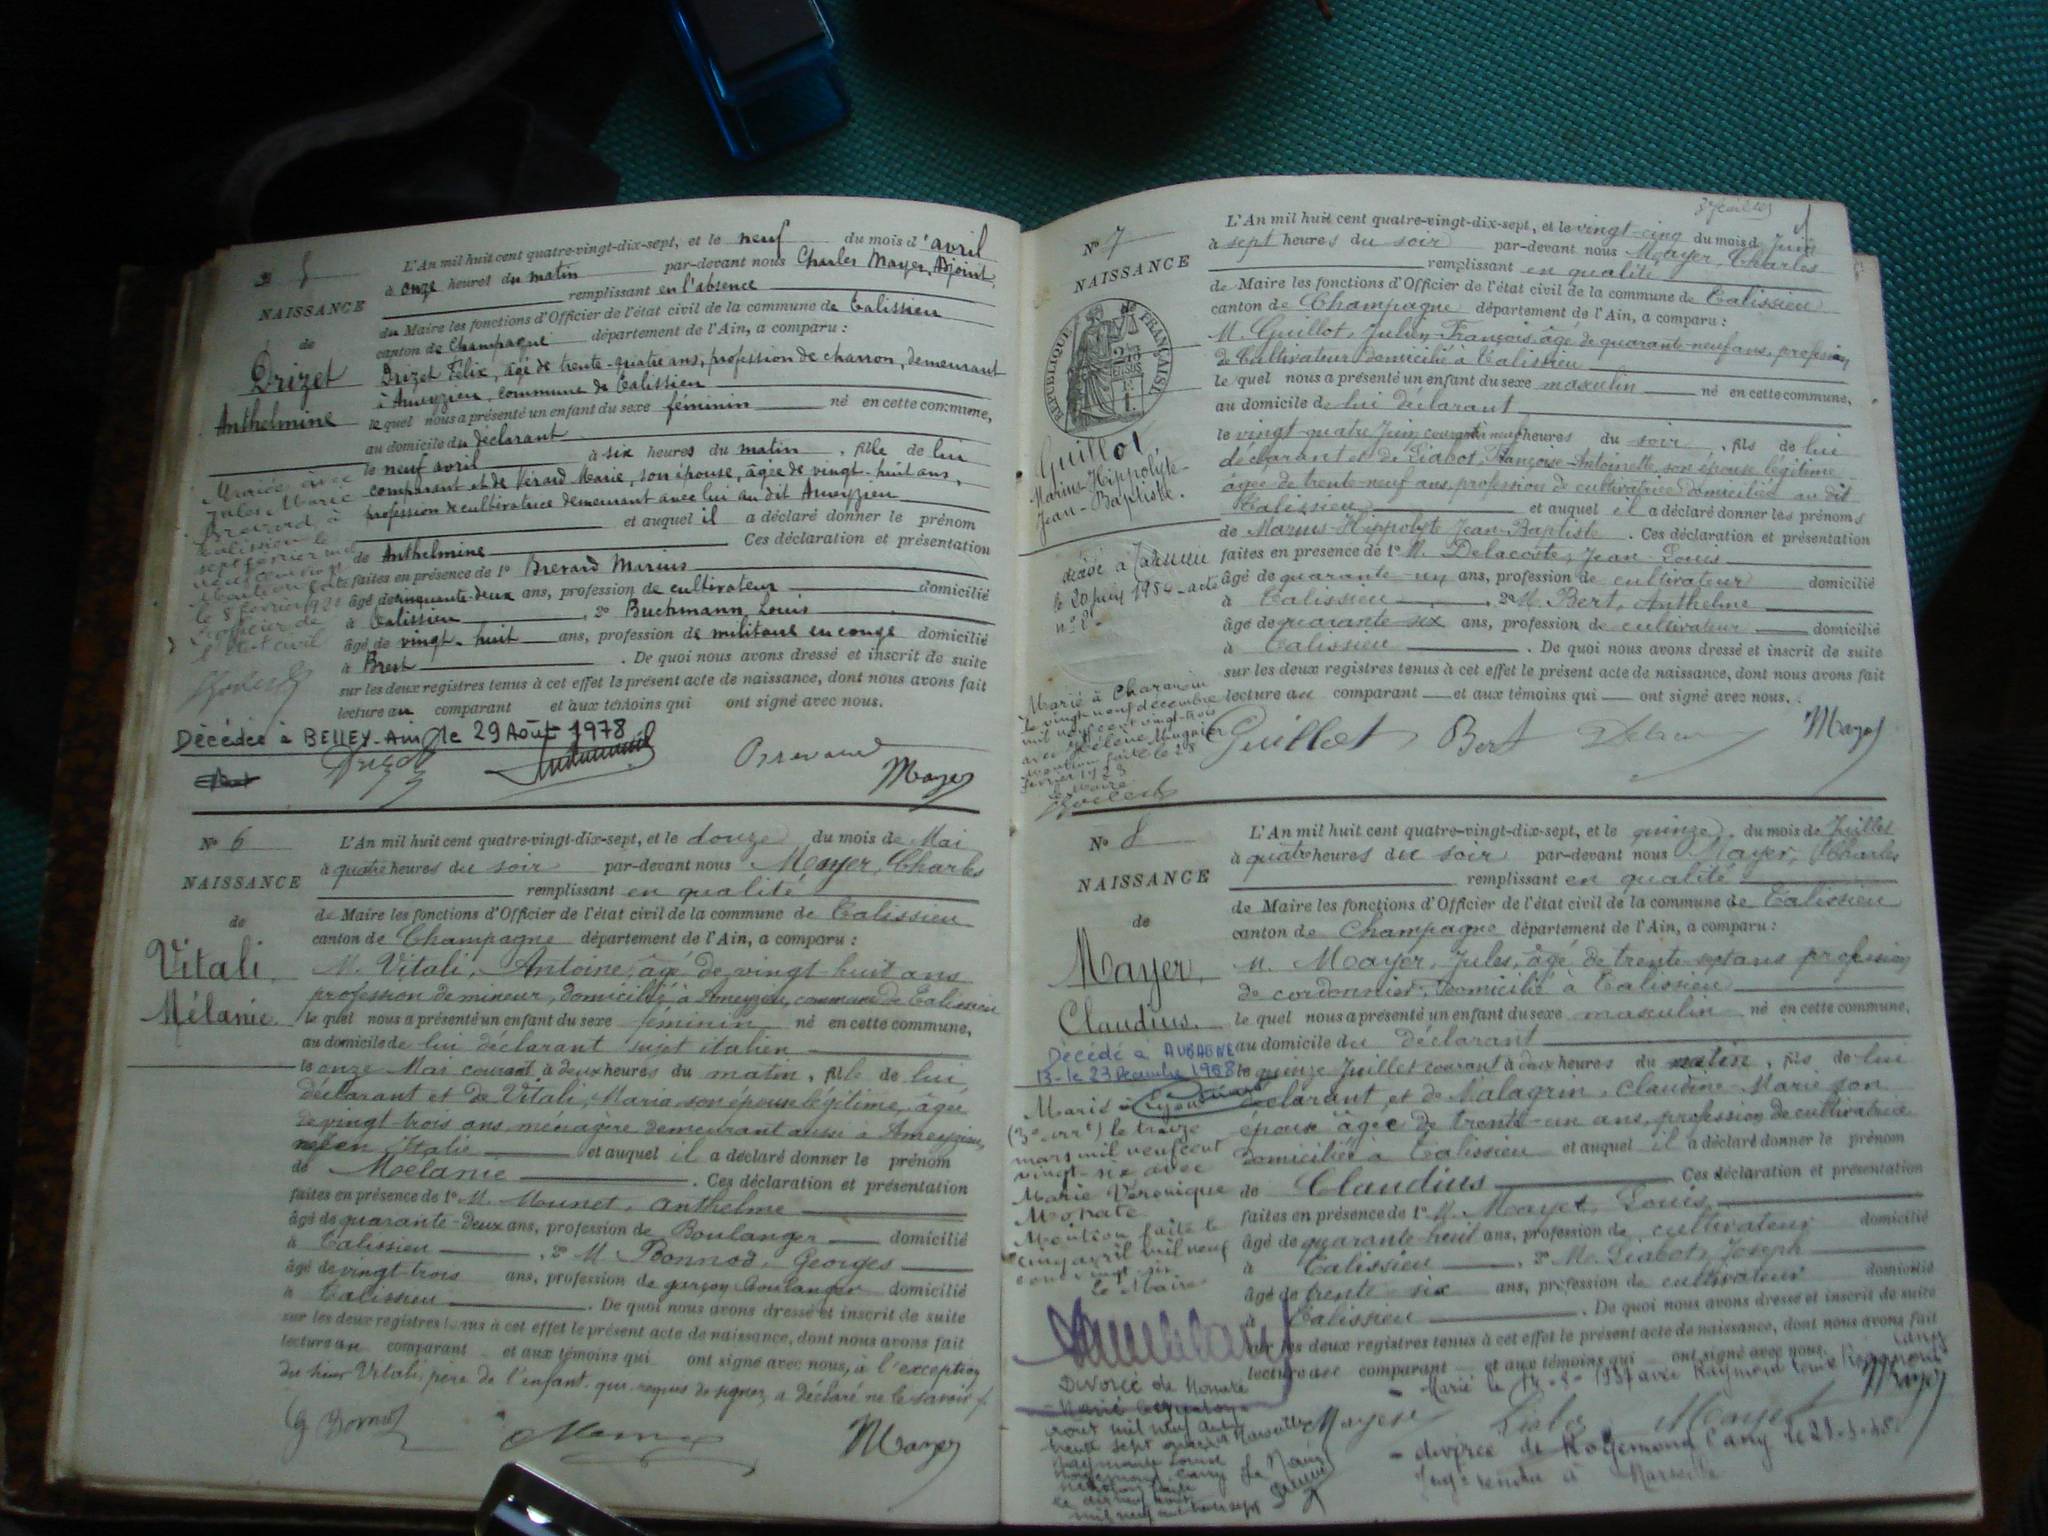 N° 5
NAISSANCE
de
Drizet
Anthelmine
L'An mil huit cent quatre-vingt-dix-sept, et le neuf du mois d'avril
à onze heures du matin par-devant nous Charles Mayer, Adjoint,
remplissant en l'absence
du Maire les fonctions d'Officier de l'état civil de la commune de Talissieu
canton de Champagne département de l'Ain, a comparu :
Drizet Félix, âgé de trente-quatre ans, profession de charron, demeurant
à Ameyzieu, commune de Talissieu
le quel nous a présenté un enfant du sexe féminin né en cette commune,
au domicile du déclarant
le neuf avril à six heures du matin, fille de lui
comparant et de Vérard Marie, son épouse, âgée de vingt-huit ans,
profession de cultivatrice demeurant avec lui au dit Ameyzieu
et auquel il a déclaré donner le prénom
de Anthelmine Ces déclaration et présentation
faites en présence de 1° Brevard Marius
âgé de cinquante-deux ans, profession de cultivateur domicilié
à Talissieu, 2° Buchmann Louis
âgé de vingt-huit ans, profession de militaire en congé domicilié
à Brest. De quoi nous avons dressé et inscrit de suite
sur les deux registres tenus à cet effet le présent acte de naissance, dont nous avons fait
lecture au comparant et aux témoins qui ont signé avec nous.
Mariée avec
Jules Marie
à
Talissieu le
sept février mil
le 8 février
l'officier de
l'état civil
Décédée à BELLEY-Ain le 29 Août 1978
Brevard
Mayer
N° 6
NAISSANCE
de
Vitali
Mélanie
L'An mil huit cent quatre-vingt-dix-sept, et le douze du mois de Mai
à quatre heures du soir par-devant nous Mayer, Charles
remplissant en qualité
de Maire les fonctions d'Officier de l'état civil de la commune de Talissieu
canton de Champagne département de l'Ain, a comparu :
M. Vitali, Antoine, âgé de vingt huit ans
profession de mineur, domicilié à Ameyzieu, commune de Talissieu
le quel nous a présenté un enfant du sexe féminin né en cette commune,
au domicile de lui déclarant sujet italien
le onze Mai courant à deux heures du matin, fille de lui
déclarant et de Vitali, Maria son épouse légitime, âgée
de vingt trois ans ménagère demeurant aussi à Ameyzieu,
née en Italie et auquel il a déclaré donner le prénom
de Mélanie. Ces déclaration et présentation
faites en présence de 1° M. Mounet, Anthelme
âgé de quarante-deux ans, profession de Boulanger domicilié
à Talissieu, 2° M Bonnod, Georges
âgé de vingt trois ans, profession de garçon Boulanger domicilié
à Talissieu. De quoi nous avons dressé et inscrit de suite
sur les deux registres tenus à cet effet le présent acte de naissance, dont nous avons fait
lecture au comparant et aux témoins qui ont signé avec nous, à l'exception
du sieur Vitali, père de l'enfant qui requis de signer a déclaré ne le savoir
Mayer
N° 7
NAISSANCE
RÉPUBLIQUE FRANÇAISE
Guillot
Marius-Hippolyte-
Jean-Baptiste.
L'An mil huit cent quatre-vingt-dix-sept, et le vingt-cinq du mois de Juin
à sept heures du soir par-devant nous Mayer, Charles
remplissant en qualité
de Maire les fonctions d'Officier de l'état civil de la commune de Talissieu
canton de Champagne département de l'Ain, a comparu :
M. Guillot, Julien-François, âgé de quarante-neuf ans, profession
de Cultivateur domicilié à Talissieu
le quel nous a présenté un enfant du sexe masculin né en cette commune,
au domicile de lui déclarant
le vingt-quatre Juin courant à neuf heures du soir, fils de lui
déclarant et de Liabot, Françoise-Antoinette, son épouse légitime
âgée de trente-neuf ans, profession de cultivatrice domiciliée au dit
Talissieu et auquel il a déclaré donner les prénoms
de Marius-Hippolyte Jean-Baptiste. Ces déclaration et présentation
faites en présence de 1° M. Delacoste, Jean-Louis
âgé de quarante-un ans, profession de cultivateur domicilié
à Talissieu, 2° M. Bert, Anthelme
âgé de quarante six ans, profession de cultivateur domicilié
à Talissieu. De quoi nous avons dressé et inscrit de suite
sur les deux registres tenus à cet effet le présent acte de naissance, dont nous avons fait
lecture au comparant et aux témoins qui ont signé avec nous.
Marié à
le vingt neuf décembre
mil neuf cent vingt-trois
avec Hélène
Guillot Bert Mayer
N° 8
NAISSANCE
de
Mayer,
Claudius.
L'An mil huit cent quatre-vingt-dix-sept, et le quinze du mois de Juillet
à quatre heures du soir par-devant nous Mayer, Charles
remplissant en qualité
de Maire les fonctions d'Officier de l'état civil de la commune de Talissieu
canton de Champagne département de l'Ain, a comparu :
M. Mayer, Jules, âgé de trente sept ans profession
de cordonnier, domicilié à Talissieu
le quel nous a présenté un enfant du sexe masculin né en cette commune,
au domicile du déclarant
le quinze Juillet courant à deux heures du matin, fils de lui
déclarant et de Malagrin, Claudine-Marie son
épouse âgée de trente-un ans, profession de cultivatrice
domiciliée à Talissieu et auquel il a déclaré donner le prénom
de Claudius Ces déclaration et présentation
faites en présence de 1° M. Mayet, Louis
âgé de quarante huit ans, profession de cultivateur domicilié
à Talissieu, 2° M. Liabot, Joseph
âgé de trente six ans, profession de cultivateur domicilié
à Talissieu. De quoi nous avons dressé et inscrit de suite
sur les deux registres tenus à cet effet le présent acte de naissance, dont nous avons fait
lecture au comparant et aux témoins qui ont signé avec nous.
Décédé à AUBAGNE
13- le 23 Décembre 1968
Marié à Lyon
(3e arrt) le treize
mars mil neuf cent
vingt-six avec
Marie Véronique
Mention faite le
cinq avril mil neuf
cent vingt six
Le Maire
Divorcé de
Marié le 14-8-1937 avec Raymond
Mayer